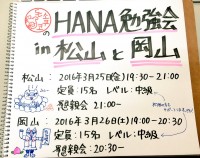 の HANA勉強会
in 松山と岡山
松山: 2016年3月25日(金)19:30-21:00
定員:15名 レベル:中級
懇親会 21:00-
岡山: 2016年3月26日(土)19:00-20:30
定員:15名 レベル:中級
懇親会: 20:30-